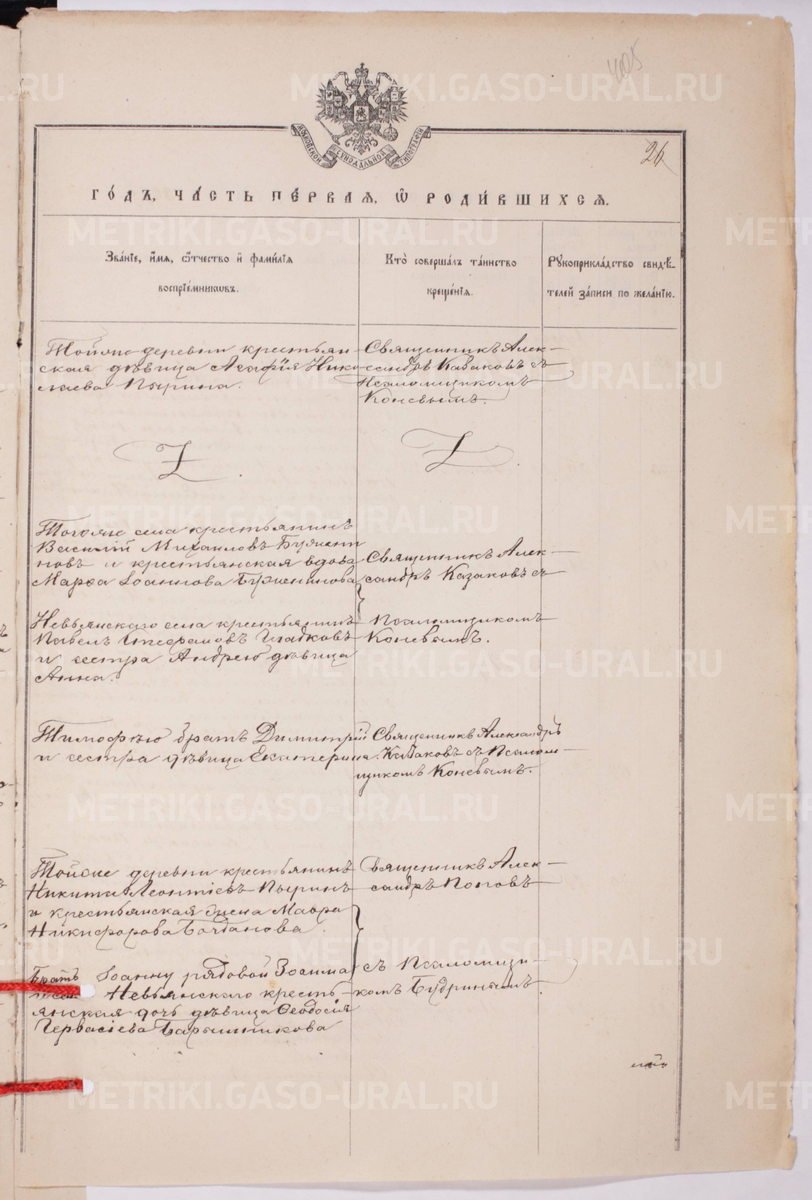 405
26
МОСКОВСКОЙ СѴНОДАЛЬНОЙ ТИПОГРАФІИ
ГО́ДЪ, ЧА́СТЬ ПЕ́РВАЯ, Ѡ҆ РОДИ́ВШИХСЯ.
Зва́нїе, и҆́мя, ѻ҆́тчество и҆ фами́лїя
воспрїе́мникѡвъ.
Кто̀ соверша́лъ та́инство
креще́нїя.
Рꙋкоприкла́дство свидѣ́-
телей за́писи по жела́нїю.
Тойже деревни крестьян
ская дѣвица Агафія Нико
лаева Пырина.
Священникъ Алек-
сандръ Казаковъ съ
Псаломщикомъ
Коневымъ.
Тогоже села крестьянинъ
Василій Михаиловъ
новъ и крестьянская вдова
Марѳа Іоаннова
Священникъ Алек-
сандръ Казаковъ съ
Невьянского села крестьянинъ
Павелъ Гладковъ
и сестра Андрею дѣвица
Анна.
Псаломщикомъ
Коневымъ.
Тимофѣю братъ Димитрій
и сестра дѣвица Екатерина.
Священникъ Александръ
Казаковъ съ Псалом-
щикомъ Коневымъ.
Тойже деревни крестьянинъ
Никита Леонтіевъ Пыринъ
и крестьянская жена Мавра
Никифорова Богданова.
Священникъ Алек-
сандръ Поповъ
Братъ Іоанну рядовой Зосима
Невьянского кресть-
янская дочь дѣвица Ѳеодосія
Гервасіева Барышникова
съ Псаломщи-
комъ Будринымъ.
METRIKI.GASO-URAL.RU